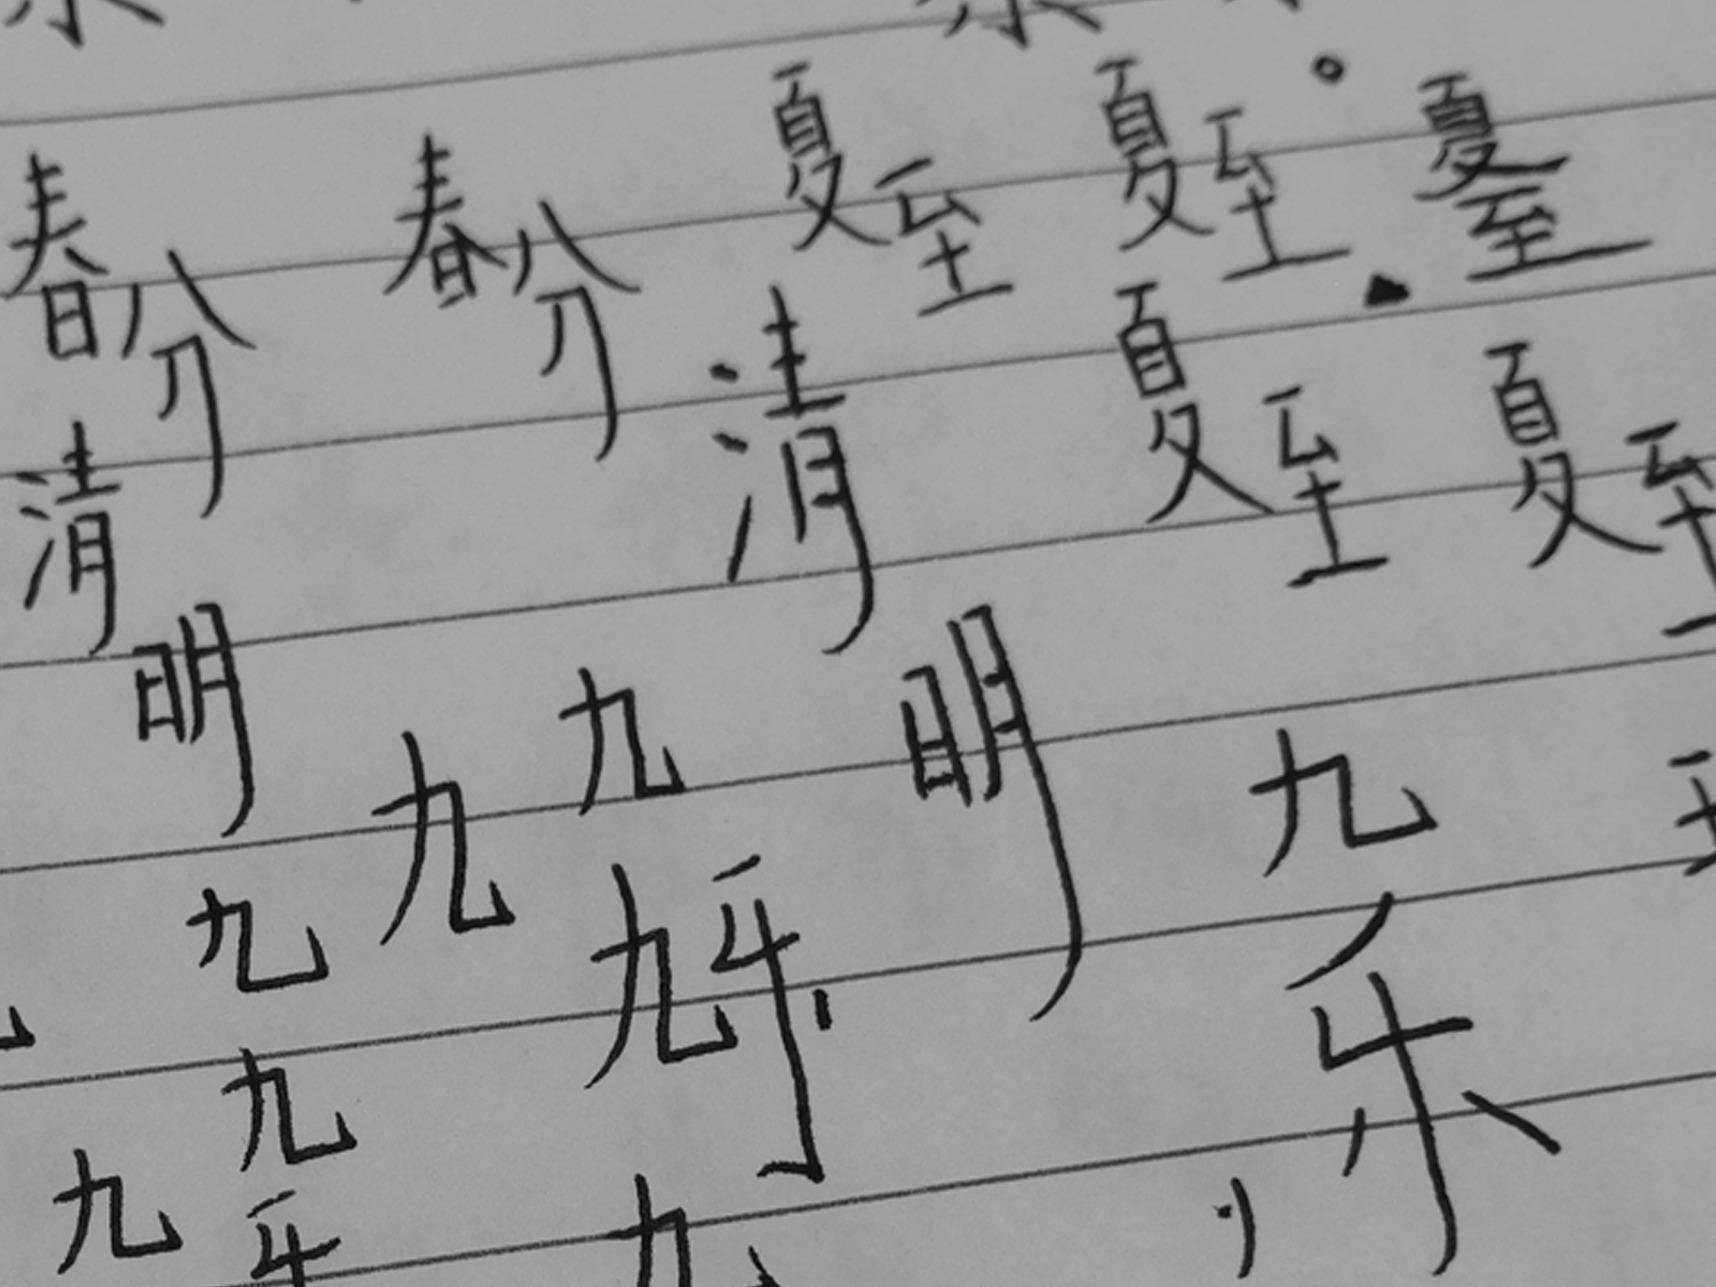 春分 春分 夏至 夏至 夏至
清明 清明 夏至 夏至
九 九 九
九 九 乐
九
九